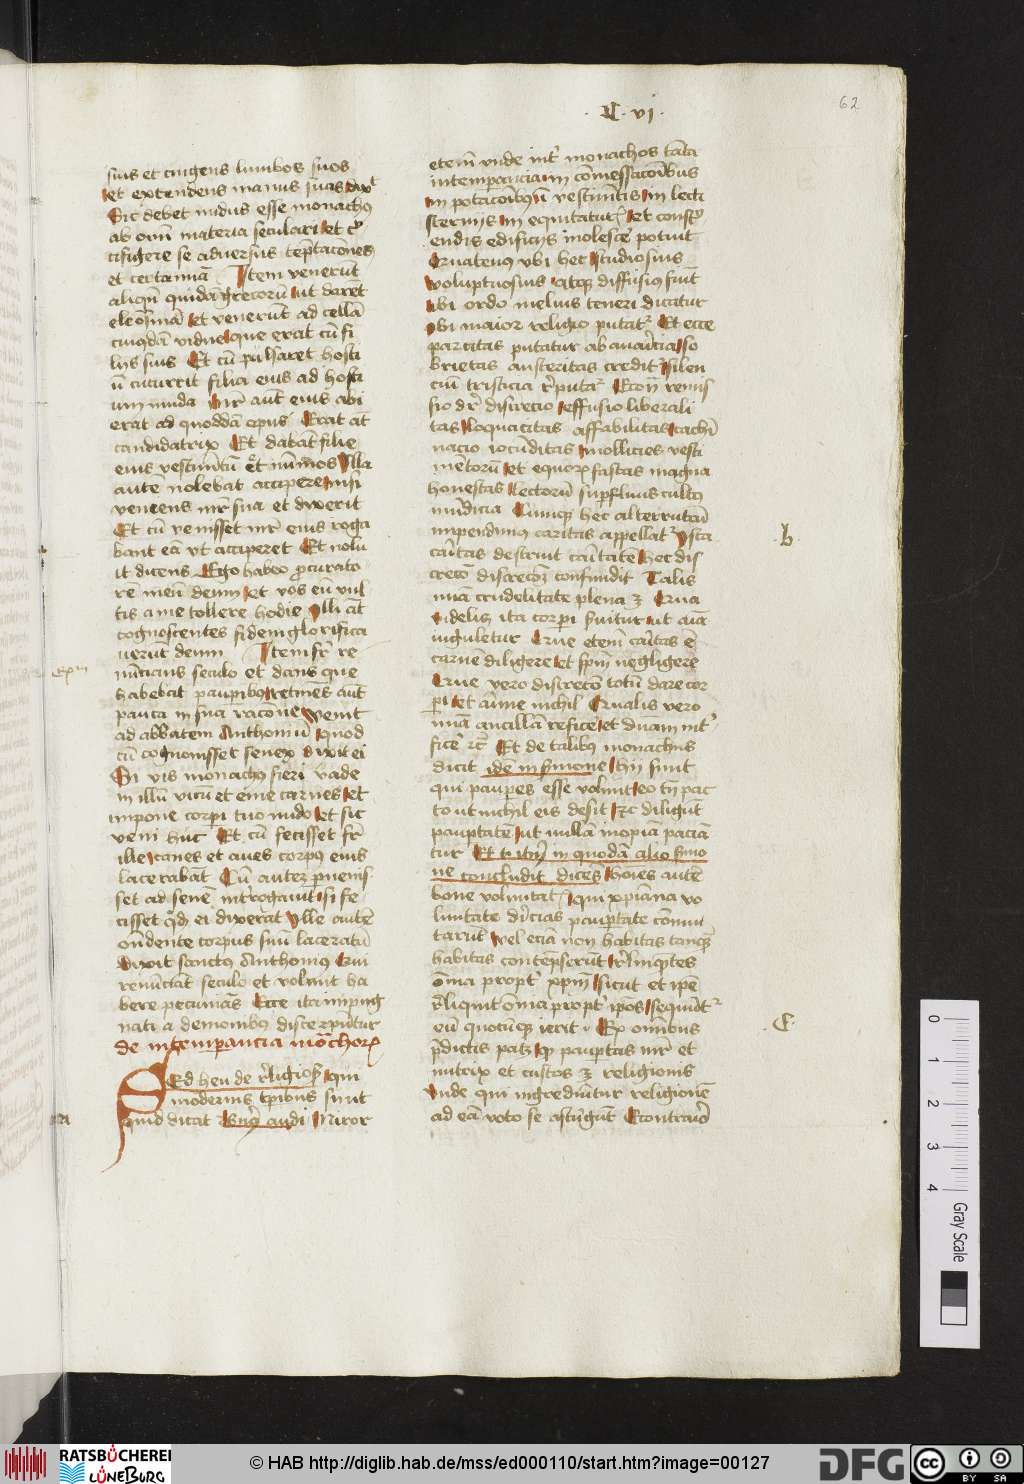 62
C. vi.
suis et cingens lumbos suos
et extendens manus suas dixt
Sic debet nudus esse monachus
ab omi materia seculari et c
cifigere se adversus teptacones
et certamia Item venerut
aliqn quida grecoru ut daret
eleosina et venerut ad cella
cuiusda vidue que erat cu fi
liis suis Et cu pulsaret hosti
u cucurrit filia eius ad hosti
um nuda mr aut eius abi
erat ad quodda opus Erat at
candidatrix Et dabat filie
eius vestimtu et nummos Illa
aute nolebat accipere nisi
veniens mr sua et dixerit
Et cu venisset mr eius roga
bant ea vt acciperet Et nolu
it dicens Ego habeo procurato
re meu deum et vos eu vul
tis a me tollere hodie Illi at
cognoscentes fidem glorifica
uerut deum Item fr re
nuncians seculo et dans que
habebat pauperibus retines aut
pauca in sua racone venit
ad abbatem Anthoniu quod
cu cognouisset senex dixit ei
Si vis monachus fieri vade
in illu vicu et eme carnes et
impone corpi tuo nudo et sic
veni huc Et cu fecisset fr
ille canes et aues corpus eius
lacerabat Cu autez puenis
set ad sene introgauit si fe
cisset qd ei dixerat Ille aute
ondente corpus suu laceratu
dixit sanctus Anthonius Qui
renuctat seculo et volunt ha
bere pecunias Ecce ita impug
nati a demonibus discerputur
de intemperancia monachor
Sed heu de religios qui
modernis tpibus sunt
quid dicat Bern audi Miror
etem unde int monachos tata
intemperancia in comessacoibus
in potacoibus i vestimtis in lecti
sterniis in equitatur et const
endis edificiis inolesce potuit
Quatenus vbi hec studiosius
voluptuosius atq diffusius fiut
ibi ordo melius teneri dicatur
vbi maior religio putat Et ecce
parcitas putatur ab auaricia so
brietas austeritas credit silen
ciu tristicia reputat Econ remis
sio dr discrecio effusio liberali
tas loquacitas affabilitas cachi
nacio iocuditas mollicies vesti
mentoru et equor fastus magna
honestas lectoru supfluus cultus
mudicia Cumq hec alterrutru
impendimus caritas appellat Ista
caitas destruit caitate hec dis
crecio discrecoz confundit Talis
mia crudelitate plena z Qua
videlz ita corpi seruitur ut aia
iuguletur Que etem caitas e
carne diligere et spm negligere
Que vero discreco totu dare cor
pi et anime nichil Qualis vero
mia ancilla reficere et duam int
ficere rc Et de talibus monachis
dicit ide in sermone hii sunt
qui pauperes esse volunt eo tn pac
to ut nichil eis desit sic diligut
pauptate ut nulla inopia pacia
tur Et in quoda alio sermo
ne concludit dices hoies aute
bone voluntat qui xpiana vo
luntate diuicias pauptate comu
tarut vel ecia non habitas tanq
habitas contepserut relinquetes
omia propt xpm sicut et ipe
reliquit omia propt ipos sequut
eu quocuq ierit Ex omibus
pdictis patz q pauptas mr et
nutrix et custos z religionis
Unde qui ingrediutur religione
ad ea voto se astrigut Econtrario
b
c
a
RATSBÜCHEREI
LÜNEBURG
© HAB http://diglib.hab.de/mss/ed000110/start.htm?image=00127
DFG
cc
BY SA
0 1 2 3 4
Gray Scale